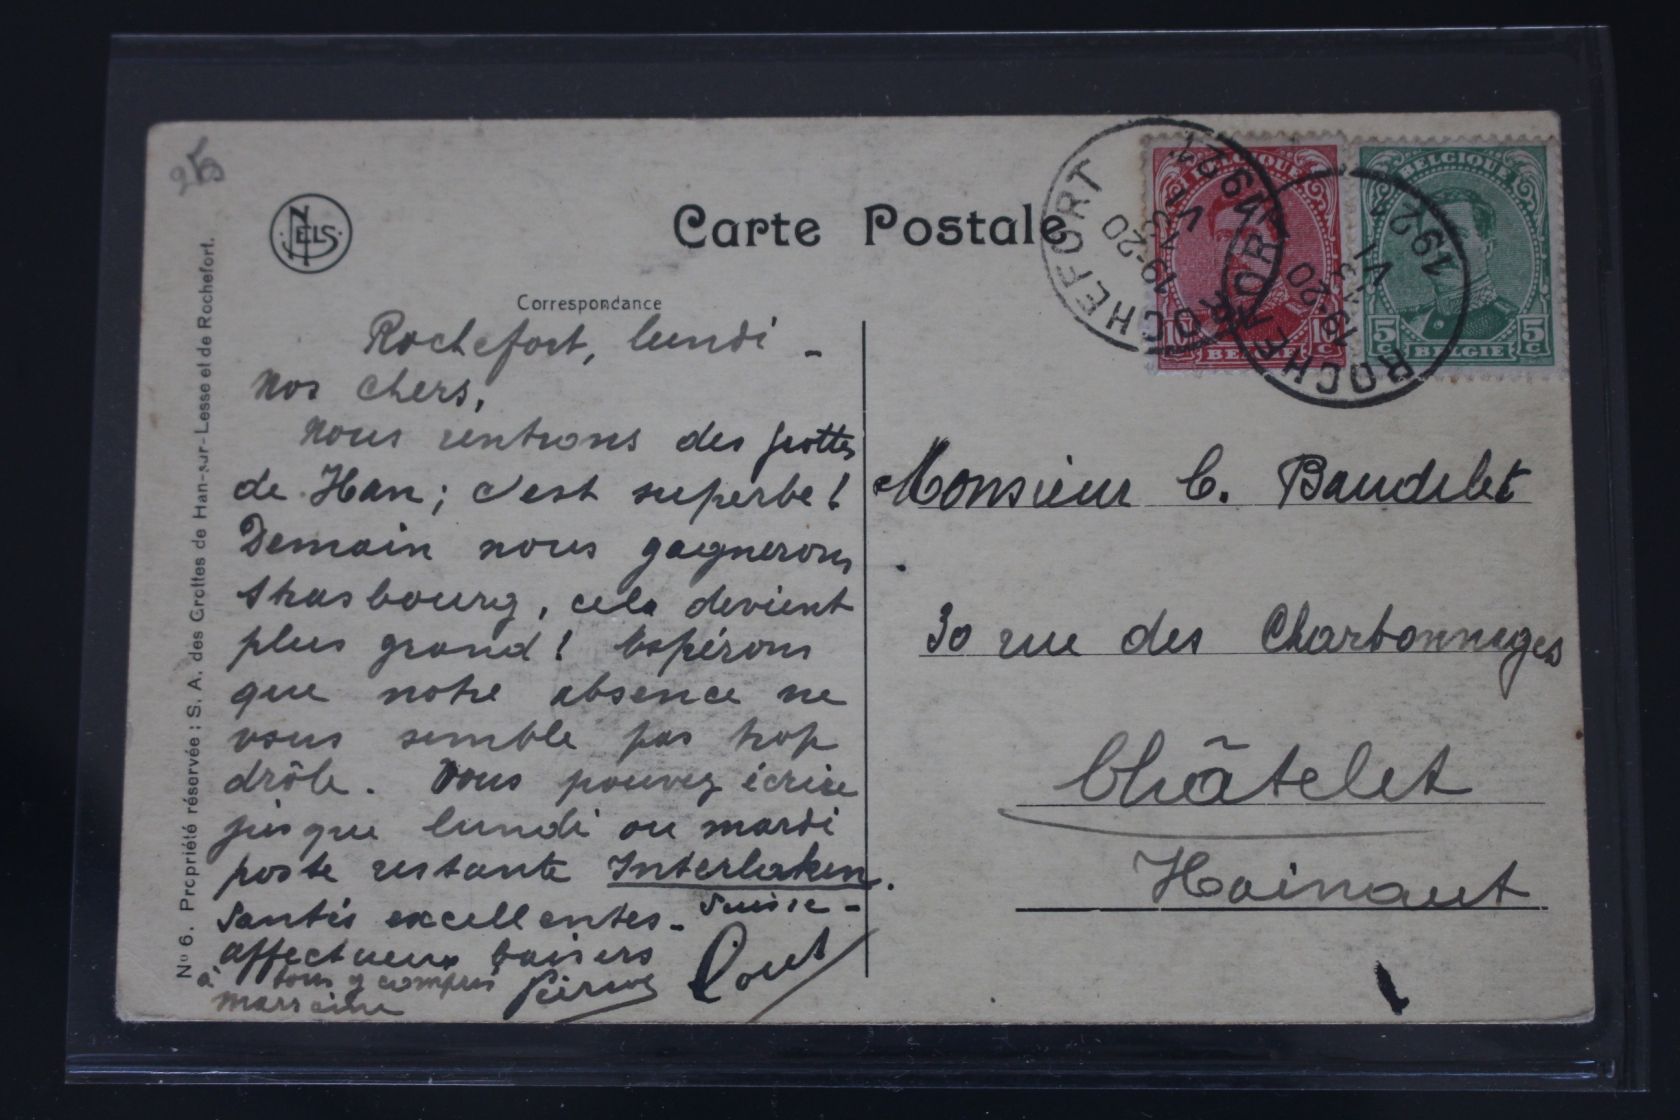 25
NELS
Carte Postale
Correspondance
ROCHEFORT
13 VI
19-20
1921
BELGIQUE
10 C 10 C
BELGIË
ROCHEFORT
13 VI
19-20
1921
BELGIQUE
5 C 5 C
BELGIE
No 6. Propriété réservée : S. A. des Grottes de Han-sur-Lesse et de Rochefort.
Rochefort, lundi -
Nos chers,
Nous rentrons des grottes
de Han ; c'est superbe !
Demain nous gagnerons
Strasbourg, cela devient
plus grand ! Espérons
que notre absence ne
vous semble pas trop
drôle. Vous pouvez écrire
jusque lundi ou mardi
poste restante Interlaken.
Suisse -
Santés excellentes -
affectueux baisers
à tous y compris
marraine
Monsieur C. Baudelet
30 rue des Charbonnages
Châtelet
Hainaut